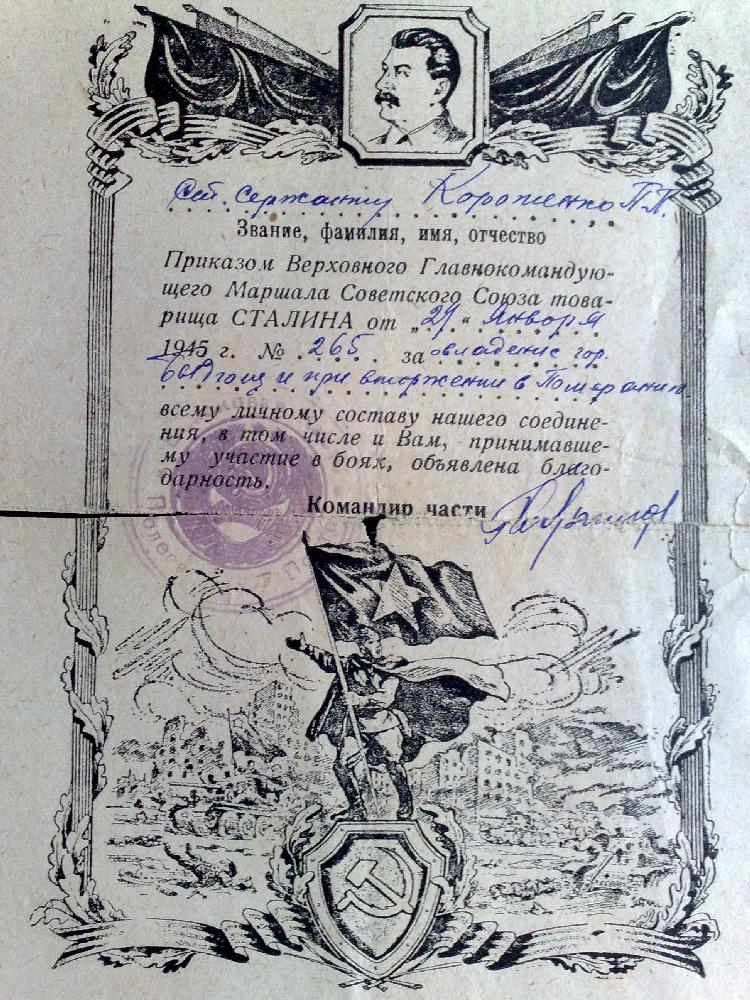 Ст. Сержанту Короженко П.П.
Звание, фамилия, имя, отчество
Приказом Верховного Главнокомандую-
щего Маршала Советского Союза това-
рища СТАЛИНА от „29“ Января
1945 г. № 265 за овладение гор.
и при вторжении в Померанию
всему личному составу нашего соедине-
ния, в том числе и Вам, принимавше-
му участие в боях, объявлена благо-
дарность.
Командир части